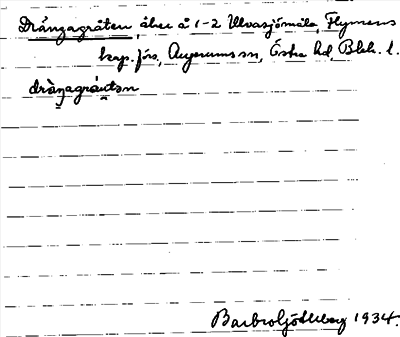 Drängagråten, åker å 1-2 Ulvasjömåla, Flymens
kap. förs., Augerums sn, Östra hd, Blek. l.
dräŋagrå̀tǝn
Barbro Ljótleberg 1934.